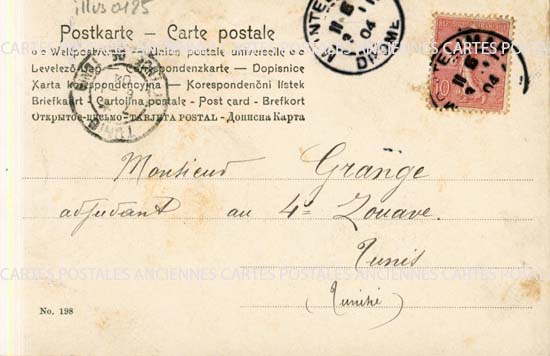 illus 0125
Postkarte – Carte postale
Weltpostverein – Union postale universelle
Levelező-Lap – Correspondenzkarte – Dopisnice
Karta korespondencyjna – Korespondenční lístek
Briefkaart – Cartolina postale - Post card - Brefkort
Открытое-письмо – TARJETA POSTAL - Дописна Карта
DROME
04
10
Monsieur Grange
adjudant au 4e Zouave.
Tunis
(Tunisie)
CARTES POSTALES ANCIENNES CARTES POSTALES ANCIENNES
No. 198